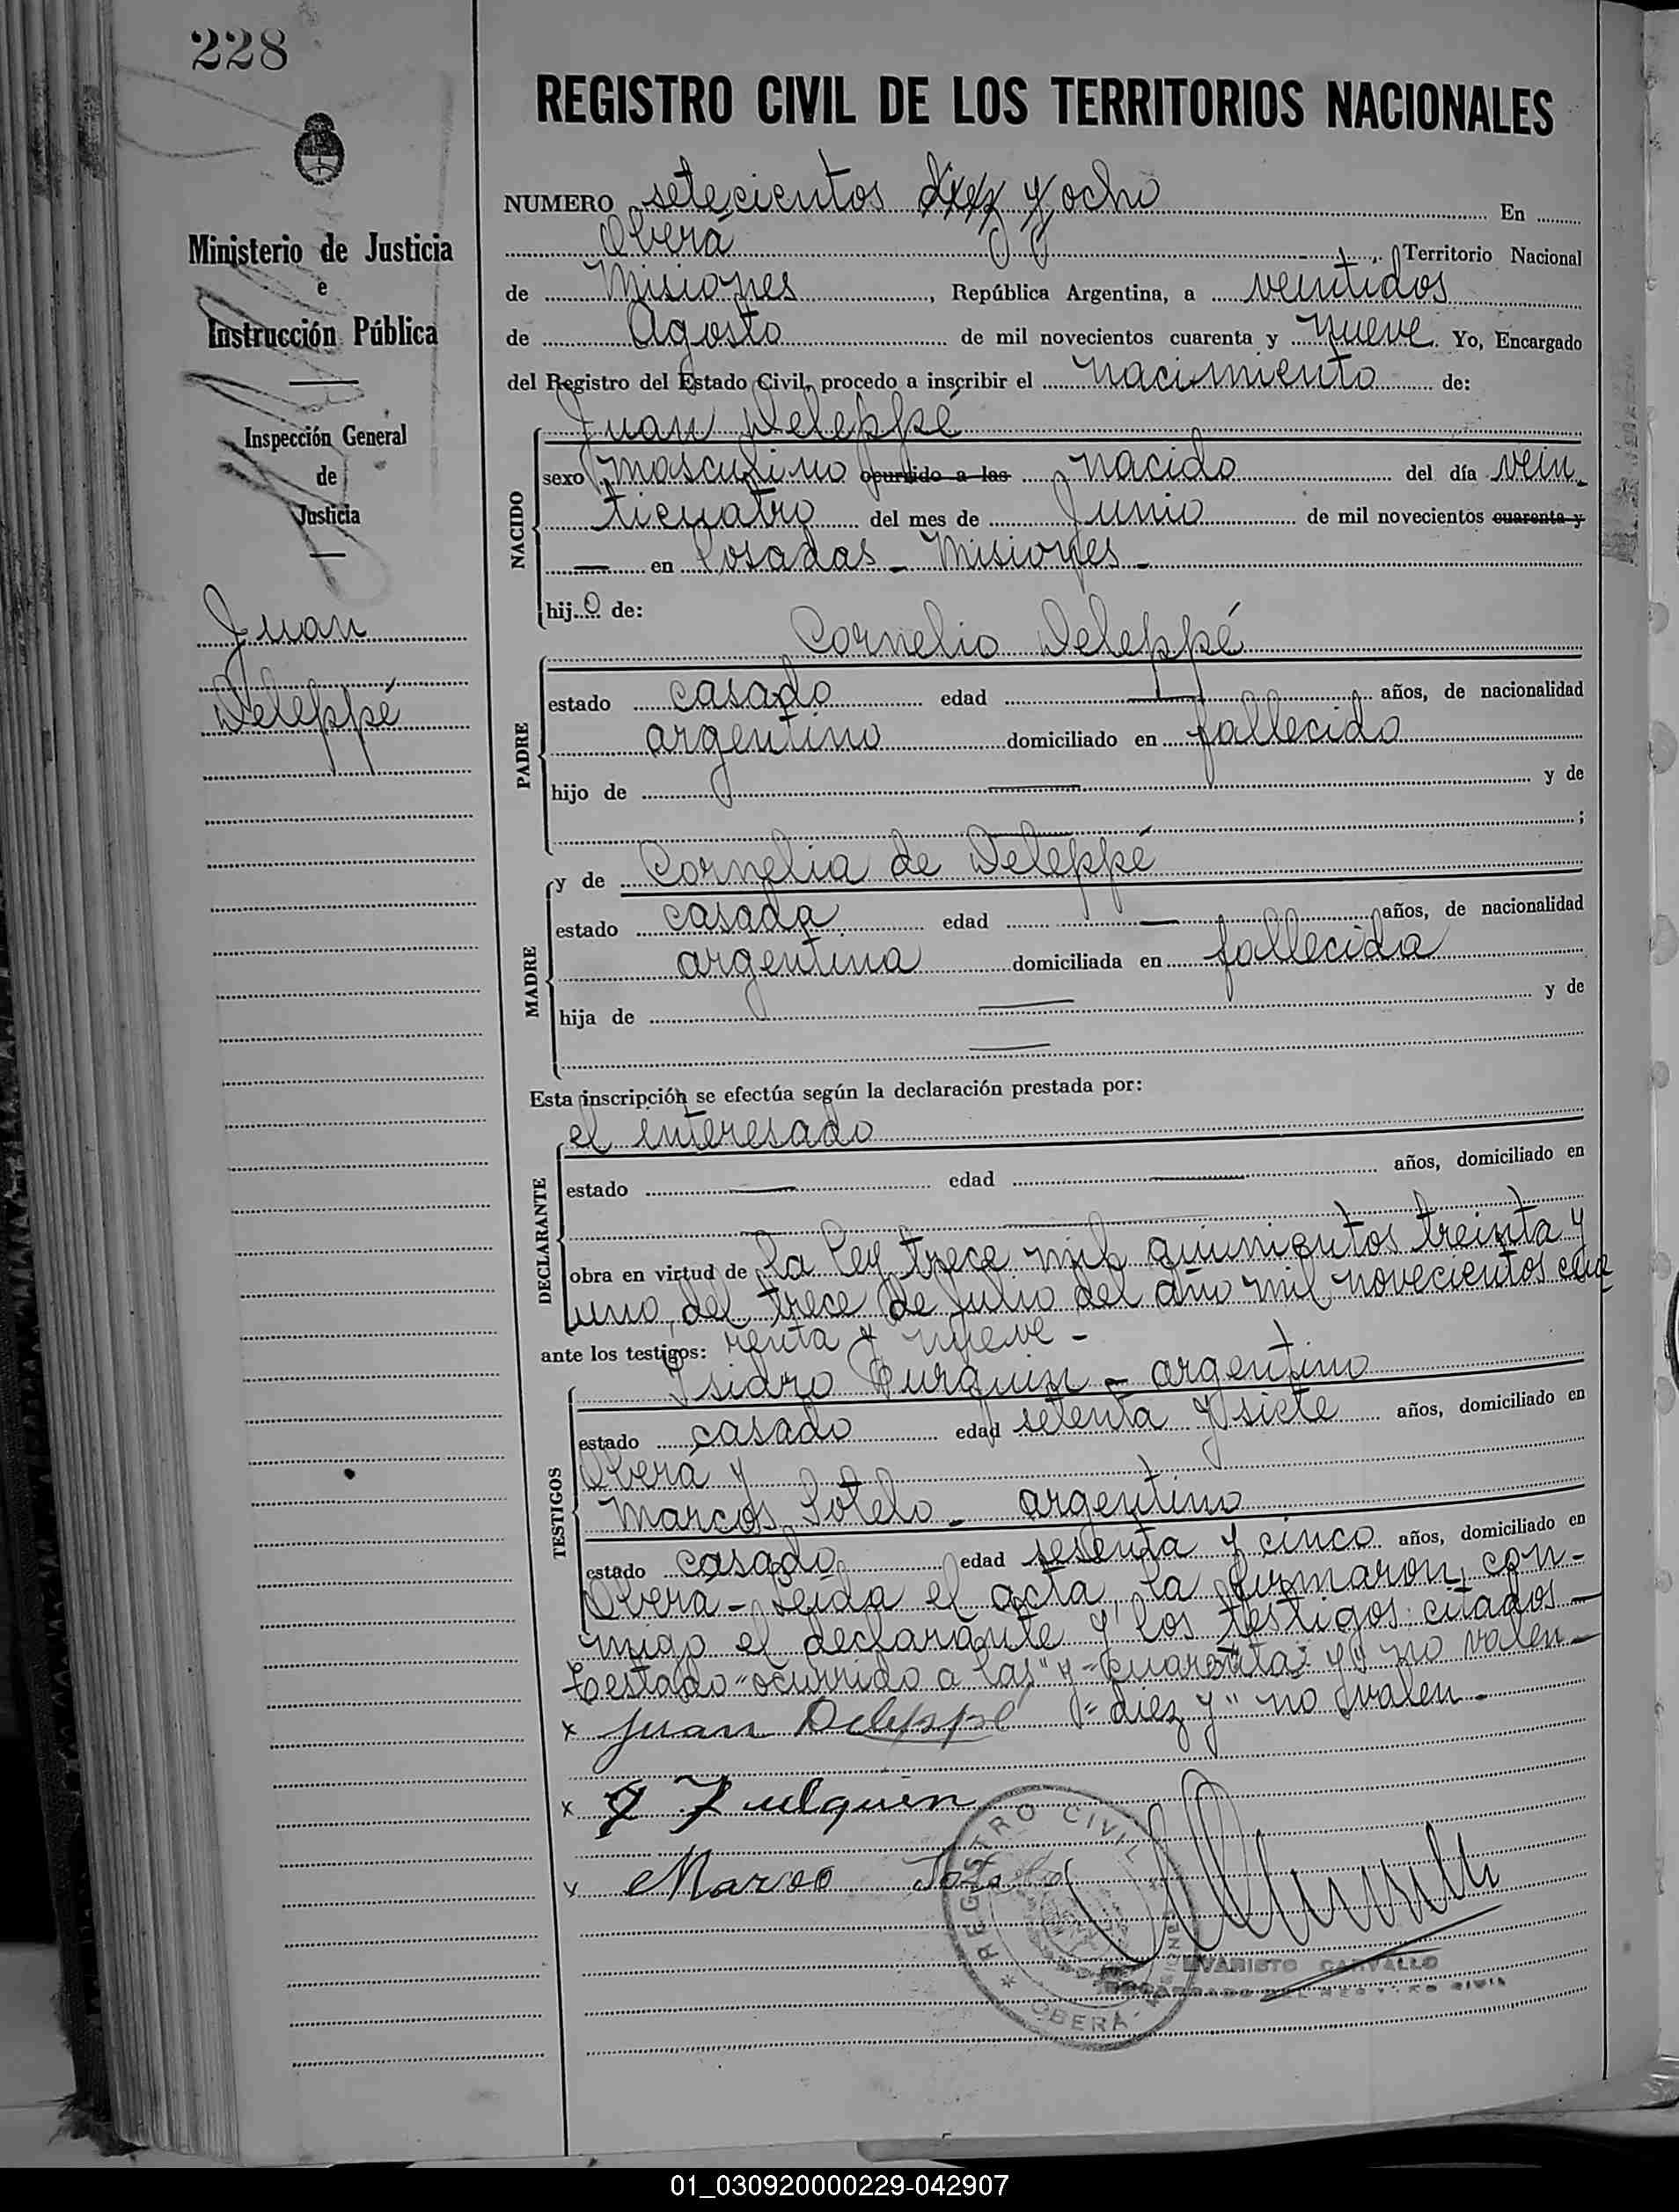 228
Ministerio de Justicia
e
Instrucción Pública
Inspección General
de
Justicia
Juan
Deleppé
REGISTRO CIVIL DE LOS TERRITORIOS NACIONALES
NUMERO setecientos diez y ocho En
Oberá, Territorio Nacional
de Misiones, República Argentina, a veintidos
de Agosto de mil novecientos cuarenta y nueve. Yo, Encargado
del Registro del Estado Civil, procedo a inscribir el nacimiento de:
Juan Deleppé
NACIDO
sexo masculino ocurrido a las nacido del día vein
ticuatro del mes de Junio de mil novecientos cuarenta y
— en Posadas - Misiones -
hijo de:
Cornelio Deleppé
PADRE
estado casado edad — años, de nacionalidad
argentino domiciliado en fallecido
hijo de — y de
— ;
y de Cornelia de Deleppé
MADRE
estado casada edad — años, de nacionalidad
argentina domiciliada en fallecida
hija de — y de
—
Esta inscripción se efectúa según la declaración prestada por:
el interesado
DECLARANTE
estado — edad — años, domiciliado en
—
obra en virtud de la Ley trece mil quinientos treinta y
uno, del trece de Julio del año mil novecientos cua
renta y nueve -
ante los testigos:
Isidro - argentino
TESTIGOS
estado casado edad setenta y siete años, domiciliado en
Oberá y
Marcos Sotelo - argentino
estado casado edad sesenta y cinco años, domiciliado en
Oberá - Leída el acta, la firmaron con-
migo el declarante y los testigos citados -
Testado "ocurrido a las" y "cuarenta y" no valen -
"diez y" no valen -
x Juan Deleppé
x
x Marco
REGISTRO CIVIL
* OBERÁ - MISIONES *
EVARISTO CARVALLO
ENCARGADO DEL REGISTRO CIVIL
01_030920000229-042907